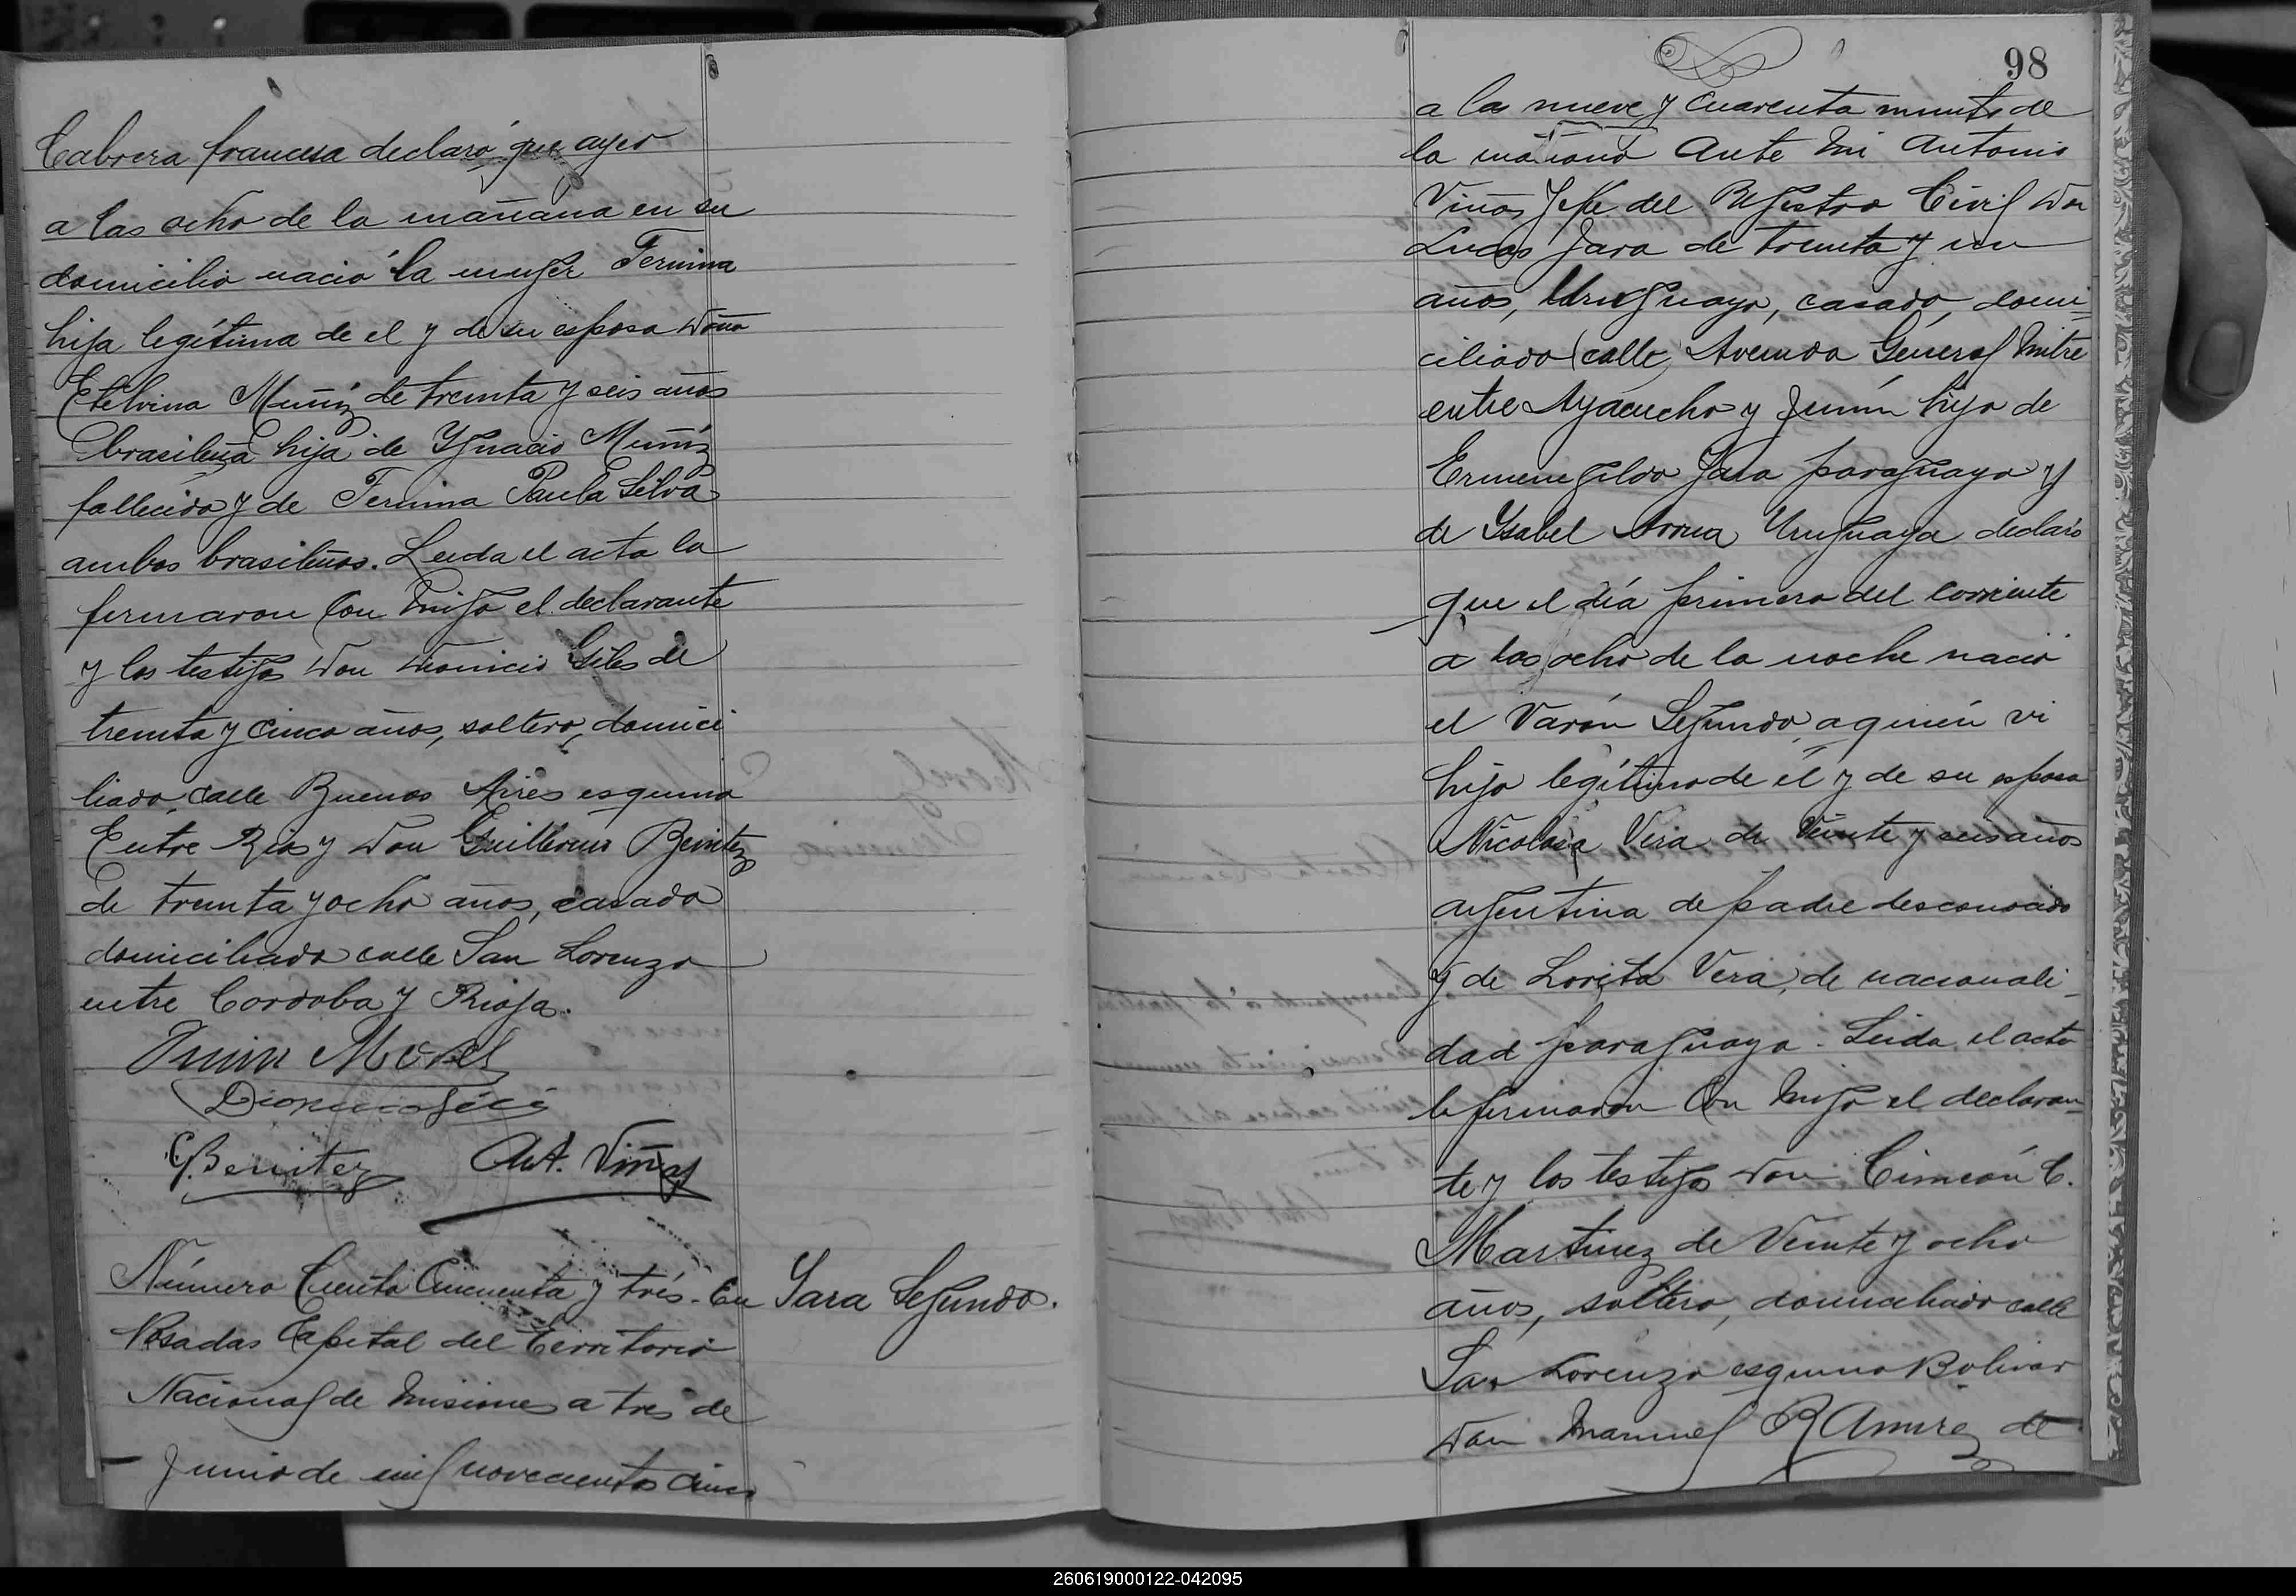 Cabrera francesa declaró que ayer
a las ocho de la mañana en su
domicilio nació la mujer Fermina
hija legítima de el y de su esposa Doña
Etelvina Muñiz de treinta y seis años
brasileña hija de Ygnacio Muñiz
fallecido y de Fermina Paula Silva
ambos brasileños. Leida el acta la
firmaron con migo el declarante
y los testigos Don Dionicio Giles de
treinta y cinco años, soltero, domici
liado calle Buenos Aires esquina
Entre Rios y Don Guillermo Benitez
de treinta y ocho años, casado
domiciliado calle San Lorenzo
entre Cordoba y Rioja.
Morel
Dionicio
G. Benitez Ant. Viñas
Número Ciento Cincuenta y trés. En
Jara Segundo.
Posadas Capital del Territorio
Nacional de Misiones a tres de
Junio de mil novecientos cinco
98
a las nueve y cuarenta minuts de
la mañana Ante mi Antonio
Viñas Jefe del Registro Civil Don
Lucas Jara de treinta y un
años, Uruguayo, casado, domi=
ciliado (calle) Avenida General Mitre
entre Ayacucho y Junín hijo de
Ermenegildo Jara paraguayo y
de Ysabel Arrua Uruguaya declaró
que el día primero del corriente
a las ocho de la noche nació
el Varón Segundo, a quién vi
hijo legítimo de él y de su esposa
Nicolasa Vera de Veinte y seis años
argentina de padre desconocido
y de Lorita Vera, de nacionali_
dad paraguaya. Leida el acta
la firmaron con migo el declaran=
te y los testigos Don Cimeón C.
Martinez de Veinte y ocho
años, soltero, domiciliado calle
San Lorenzo esquina Bolivar
Don Manuel Ramirez de
260619000122-042095